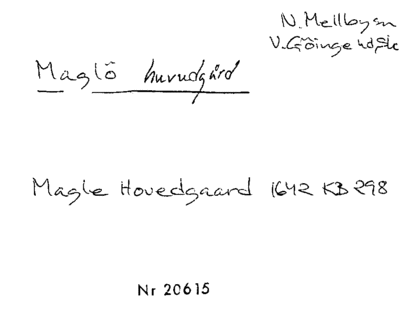 N. Mellby sn
V. Göinge hd, Sk
Maglö huvudgård
Magle Hovedgaard 1642 KB 298
Nr 20615